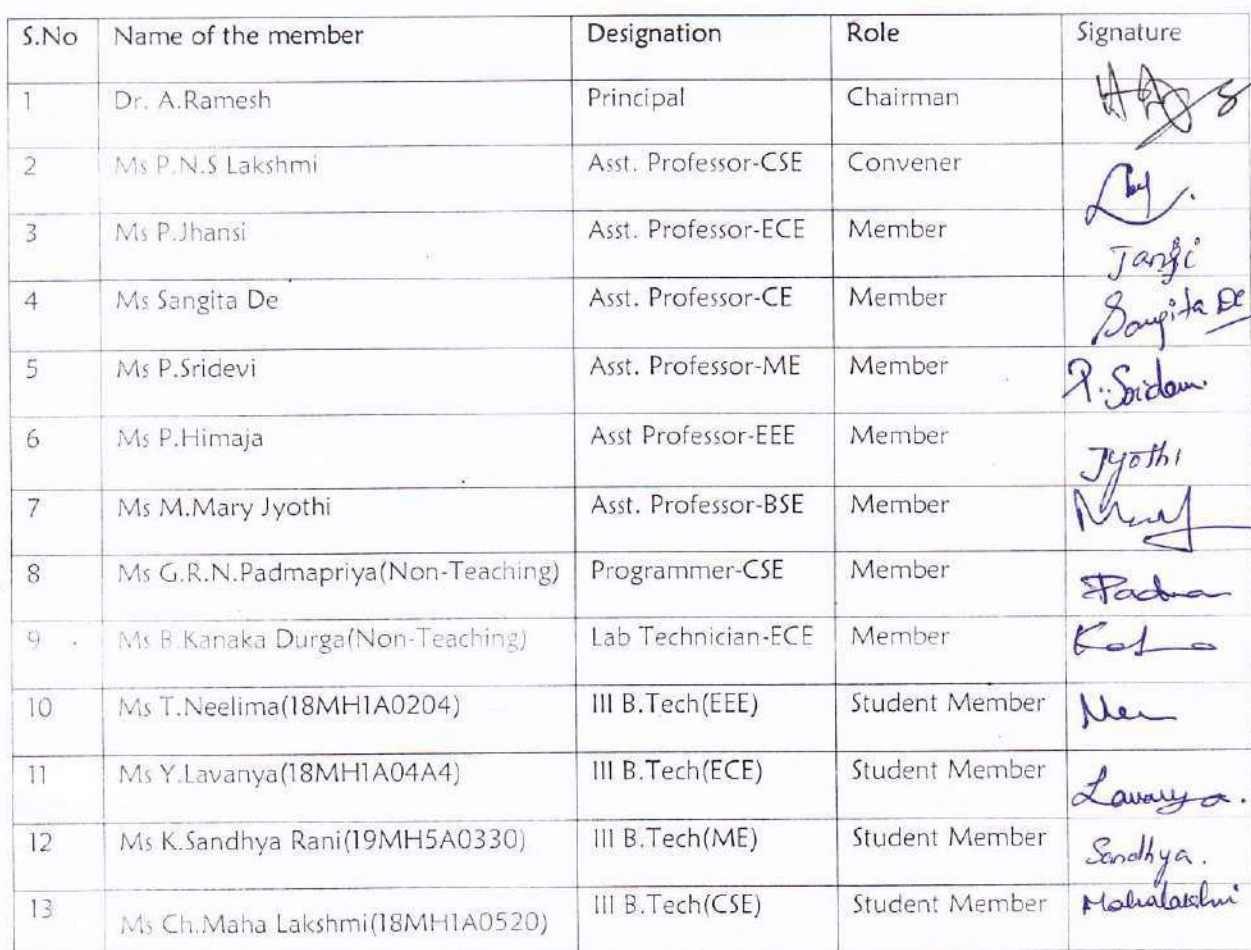 S.No Name of the member Designation Role Signature
1 Dr. A.Ramesh Principal Chairman
2 Ms P.N.S Lakshmi Asst. Professor-CSE Convener
3 Ms P.Jhansi Asst. Professor-ECE Member
4 Ms Sangita De Asst. Professor-CE Member Sangita De
5 Ms P.Sridevi Asst. Professor-ME Member
6 Ms P.Himaja Asst Professor-EEE Member Jyothi
7 Ms M.Mary Jyothi Asst. Professor-BSE Member
8 Ms G.R.N.Padmapriya(Non-Teaching) Programmer-CSE Member
9 Ms B.Kanaka Durga(Non-Teaching) Lab Technician-ECE Member
10 Ms T.Neelima(18MH1A0204) III B.Tech(EEE) Student Member
11 Ms Y.Lavanya(18MH1A04A4) III B.Tech(ECE) Student Member Lavanya.
12 Ms K.Sandhya Rani(19MH5A0330) III B.Tech(ME) Student Member Sandhya.
13 Ms Ch.Maha Lakshmi(18MH1A0520) III B.Tech(CSE) Student Member Mahalakshmi